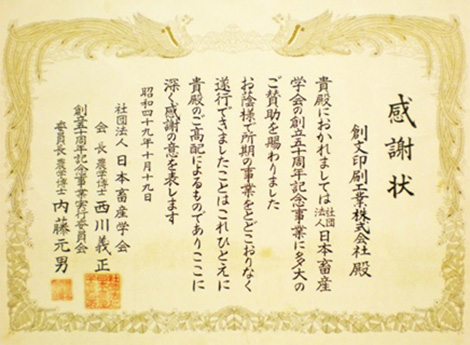 感謝状
創文印刷工業株式会社 殿
貴殿におかれましては社団法人日本畜産
学会の創立五十周年記念事業に多大の
ご賛助を賜わりました
お陰様で所期の事業をとどこおりなく
遂行できましたことはこれひとえに
貴殿のご高配によるものでありここに
深く感謝の意を表します
昭和四十九年十月十九日
社団法人 日本畜産学会
会長 農学博士 西川義正
創立五十周年記念事業実行委員会
委員長 農学博士 内藤元男